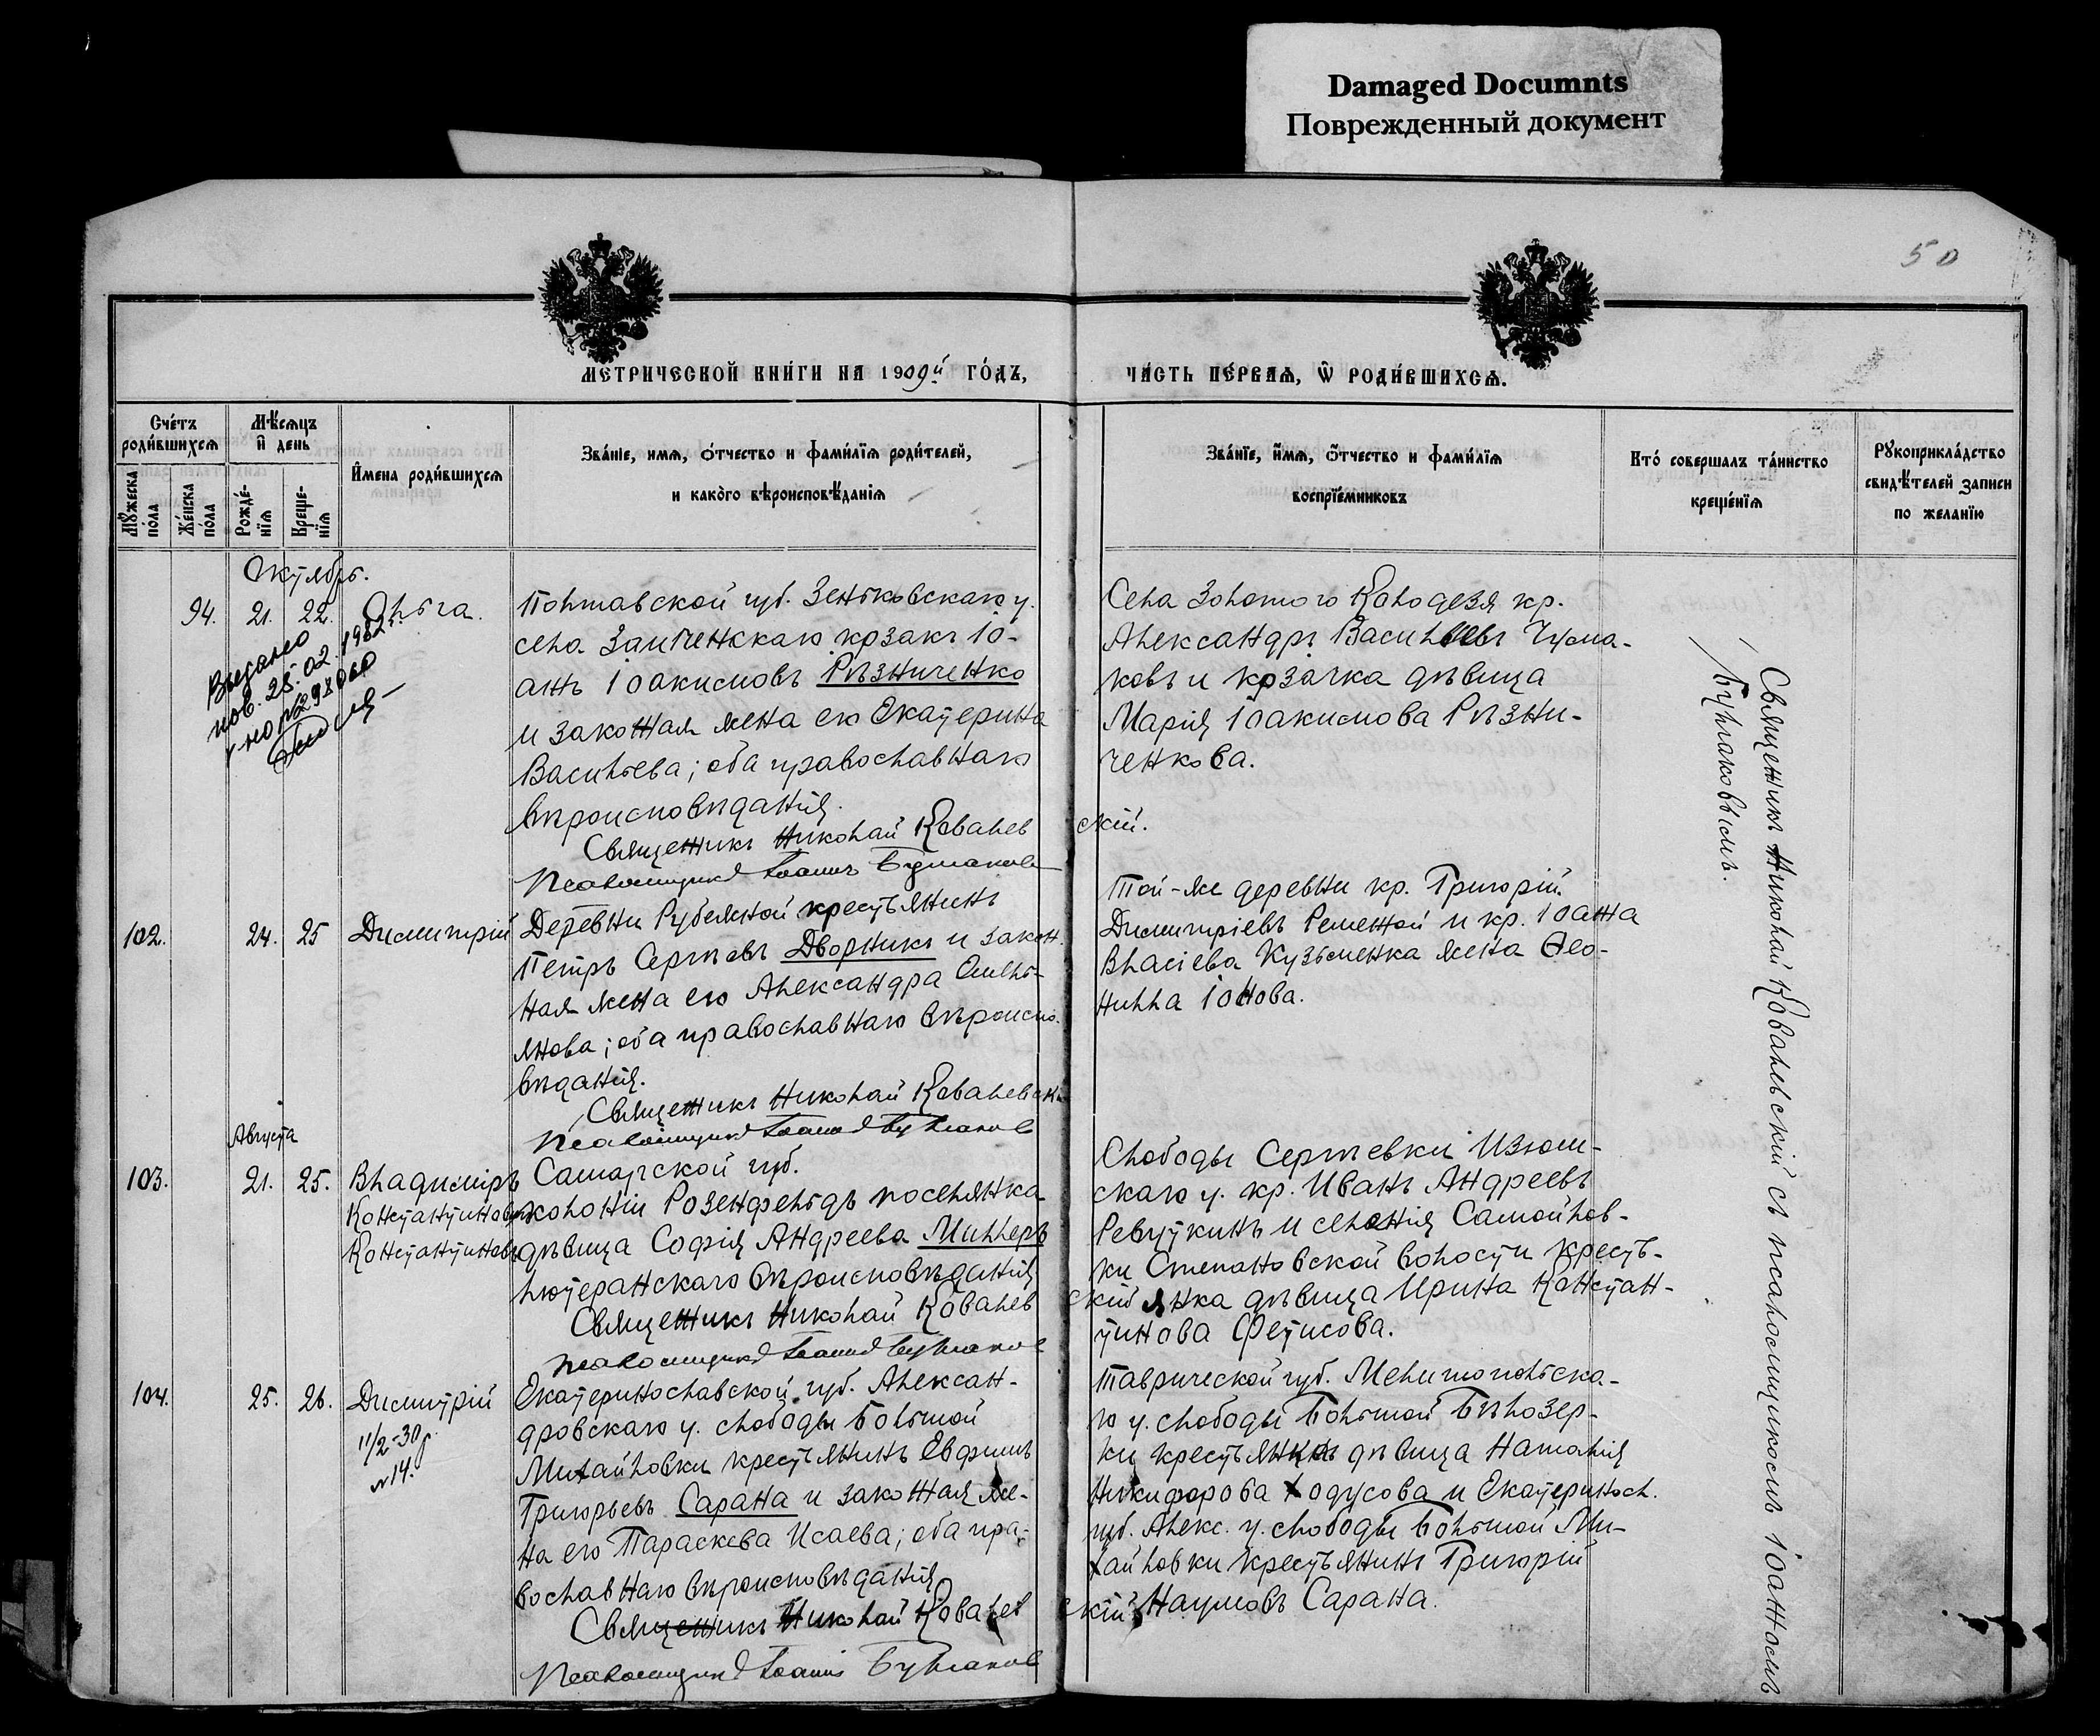 Damaged Documnts
Поврежденный документ
50
МЕТРИЧЕСКОЙ КНИ́ГИ НА 1909й ГО́ДЪ,
ЧА́СТЬ ПЕ́РВАѦ, Ѡ҆ РОДИ́ВШИХСѦ.
Сче́тъ
роди́вшихсѧ
Мѣ́сѧцъ
и҆ день
И҆мена роди́вшихсѧ
Зва́нїе, имѧ, о́тчество и фами́лїѧ роди́телей,
и како́го вѣроисповѣ́данїѧ
Зва́нїе, и҆мѧ, о҆тчество и фами́лїѧ
воспрїе́мниковъ
Кто́ совершалъ та́инство
креще́нїѧ
Рꙋкоприкла́дство
свидѣ́телей записи
по желанїю
Мꙋ́жеска
по́ла
Же́нска
по́ла
Рожде́-
нїѧ
Креще-
нїѧ
Октябрь.
94. 21. 22. Ольга.
Выдано
пов. 25.02.1982 г.
Полтавской губ. Зеньковскаго у.
села Заиченскаго козакъ Іо-
аннъ Іоакимовъ Рѣзниченко
и законная жена его Екатерина
Васильева; оба православнаго
вѣроисповѣданія.
Священникъ Николай Ковалев
скій.
Псаломщикъ Іоаннъ Булгаковъ
Села Золотого Колодезя кр.
Александръ Васильевъ Чума-
ковъ и козачка дѣвица
Марія Іоакимова Рѣзни-
ченкова.
102. 24. 25 Димитрій
Деревни Рубежной крестьянинъ
Петръ Сергѣевъ Дворникъ и закон-
ная жена его Александра Емель-
янова; оба православнаго вѣроиспо-
вѣданія.
Священникъ Николай Ковалевскій
Псаломщикъ Іоаннъ Булгаковъ
Той-же деревни кр. Григорій
Димитріевъ Ременной и кр. Іоанна
Власіева Кузьменка жена Ѳео-
нилла Іонова.
Августа
103. 21. 25. Владиміръ
Константиновичъ
Константиновъ
Самарской губ.
колоніи Розенфельдъ поселянка
дѣвица Софія Андреева Миллеръ
лютеранскаго вѣроисповѣданія
Священникъ Николай Ковалев
скій
Псаломщикъ Іоаннъ Булгаковъ
Слободы Сергѣевки Изюм-
скаго у. кр. Иванъ Андреевъ
Ревуткинъ и селенія Самойлов-
ки Степановской волости кресть-
янка дѣвица Ирина Констан-
тинова Фетисова.
104. 25. 26. Димитрій
11/2-30 г.
№14.
Екатеринославской губ. Алексан-
дровскаго у. слободы Большой
Михайловки крестьянинъ Евфимъ
Григорьевъ Сарана и законная же-
на его Параскева Исаева; оба пра-
вославнаго вѣроисповѣданія
Священникъ Николай Ковалев
скій
Псаломщикъ Іоаннъ Булгаковъ
Таврической губ. Мелитопольска-
го у. слободы Большой Бѣлозер-
ки крестьянка дѣвица Наталія
Никифорова Ходусова и Екатериносл.
губ. Алекс. у. слободы Большой Ми-
хайловки крестьянинъ Григорій
Наумовъ Сарана.
Священникъ Николай Ковалевскій съ псаломщикомъ Іоанномъ
Булгаковымъ.